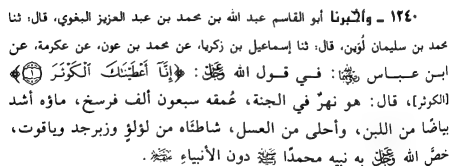 ١٢٤٠ - وأخبرنا أبو القاسم عبد الله بن محمد بن عبد العزيز البغوي، قال: ثنا
محمد بن سليمان لُوَين، قال: ثنا إسماعيل بن زكريا، عن محمد بن عون، عن عكرمة، عن
ابن عباس رضي الله عنهما: في قول الله عز وجل: ﴿إِنَّا أَعْطَيْنَاكَ الْكَوْثَرَ ۝١﴾
[الكوثر]، قال: هو نهرٌ في الجنة، عُمقه سبعون ألف فرسخ، ماؤه أشد
بياضًا من اللبن، وأحلى من العسل، شاطئاه من لؤلؤ وزبرجد وياقوت،
خصَّ الله عز وجل به نبيه محمدًا ﷺ دون الأنبياء